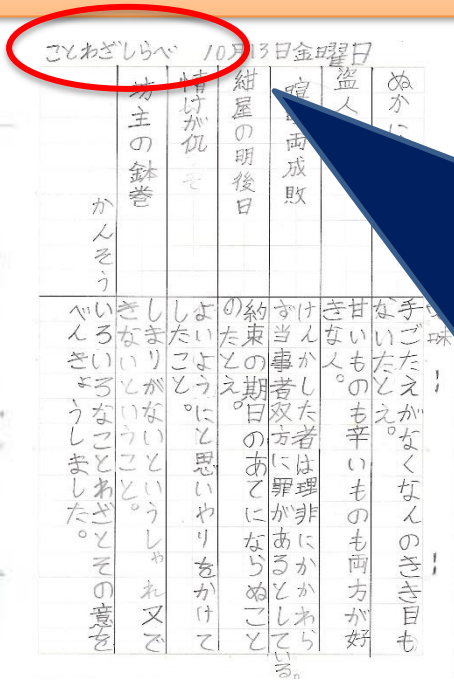 ことわざしらべ 10月13日金曜日
ぬかに
手ごたえがなくなんのきき目も
ないたとえ。
盗人
甘いものも辛いものも両方が好
きな人。
両成敗
けんかした者は理非にかかわら
ず当事者双方に罪があるとしている。
紺屋の明後日
約束の期日のあてにならぬこと
のたとえ。
情けが仇
よいようにと思いやりをかけて
したこと。
坊主の鉢巻
しまりがないというしゃれ又で
きないということ。
かんそう
いろいろなことわざとその意を
べんきょうしました。